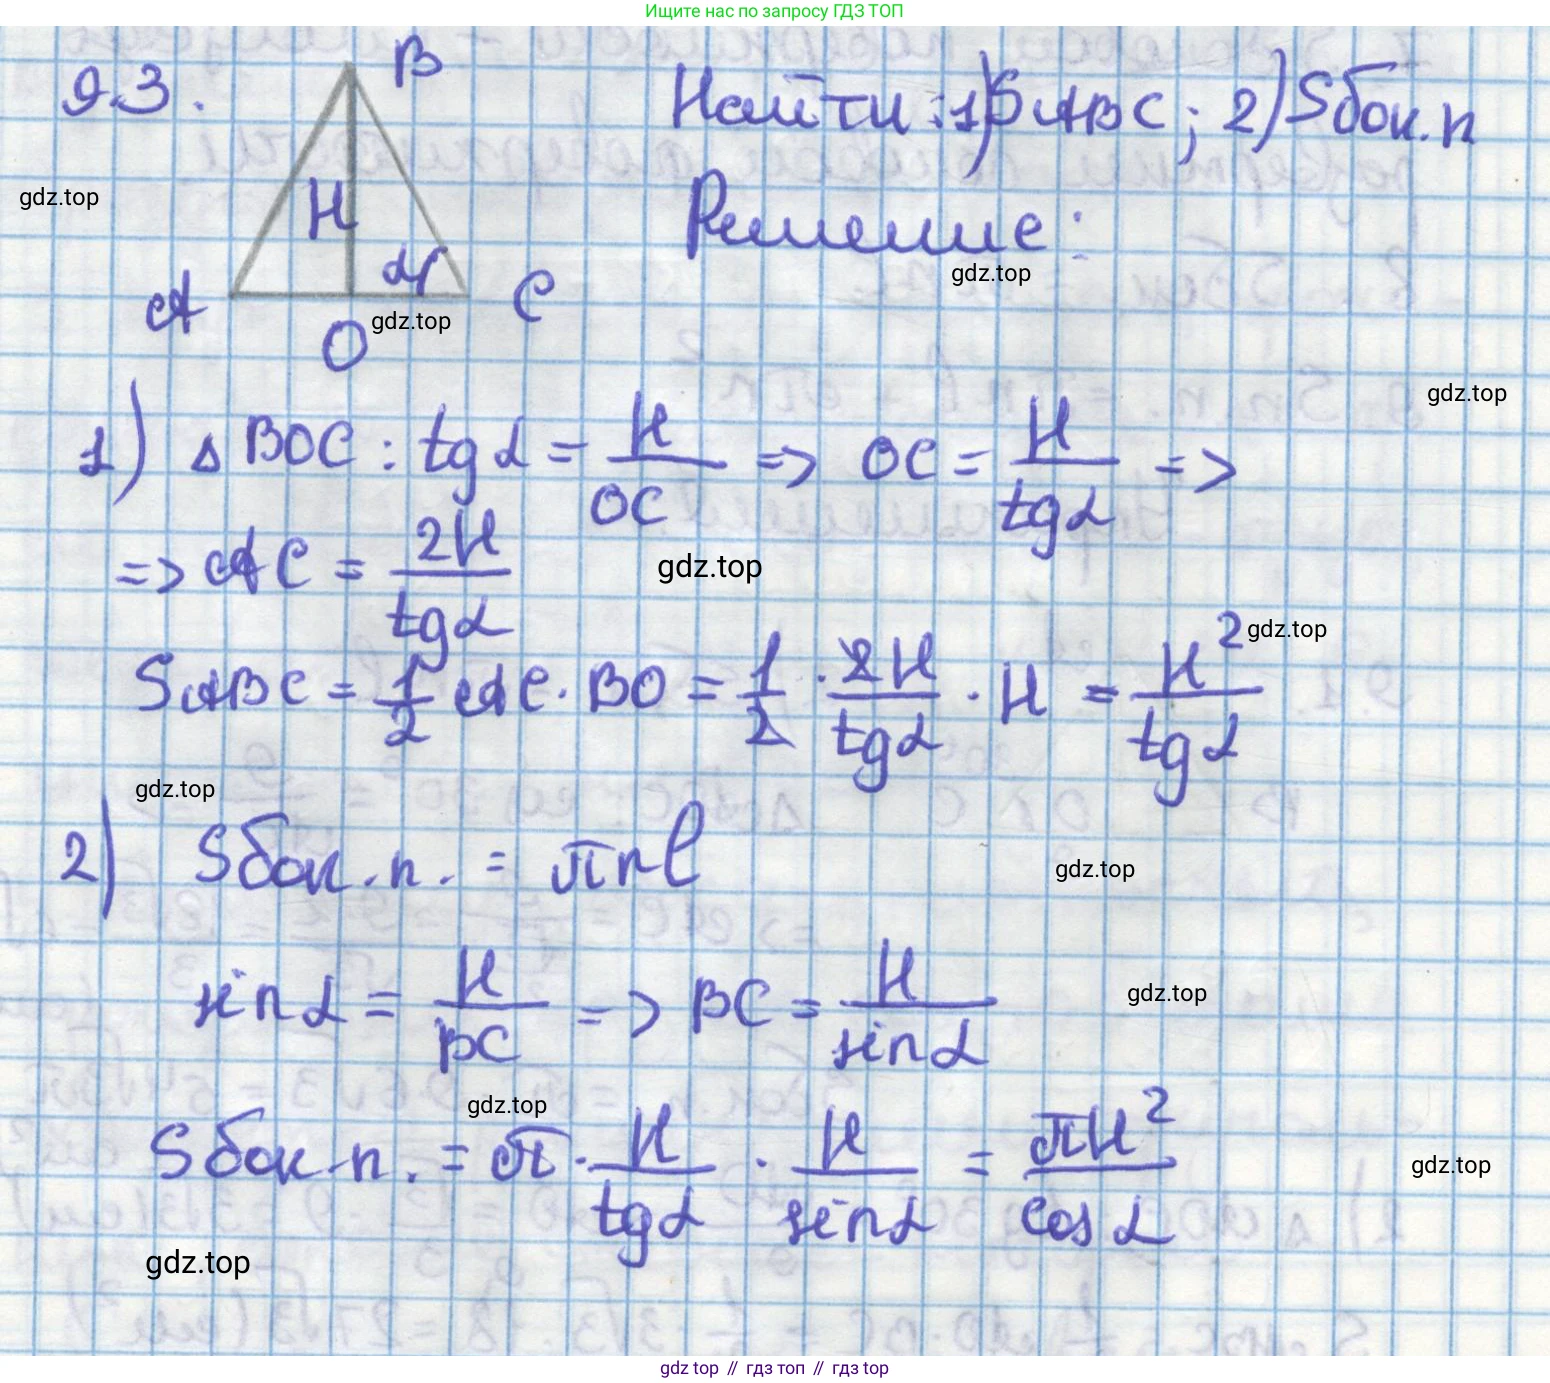 Ищите нас по запросу ГДЗ ТОП
9.3.
B
Найти: 1) S ABC; 2) S бок. п
gdz.top
H
Решение:
α
A
C
gdz.top
gdz.top
O
gdz.top
1) △ BOC : tg α = H / OC => OC = H / tg α =>
=> AC = 2H / tg α
gdz.top
gdz.top
S ABC = 1/2 AC · BO = 1/2 · 2H / tg α · H = H² / tg α
gdz.top
2) S бок. п. = πrl
gdz.top
sin α = H / BC => BC = H / sin α
gdz.top
gdz.top
S бок. п. = π · H / tg α · H / sin α = πH² / cos α
gdz.top
gdz.top
gdz top // гдз топ // гдз top